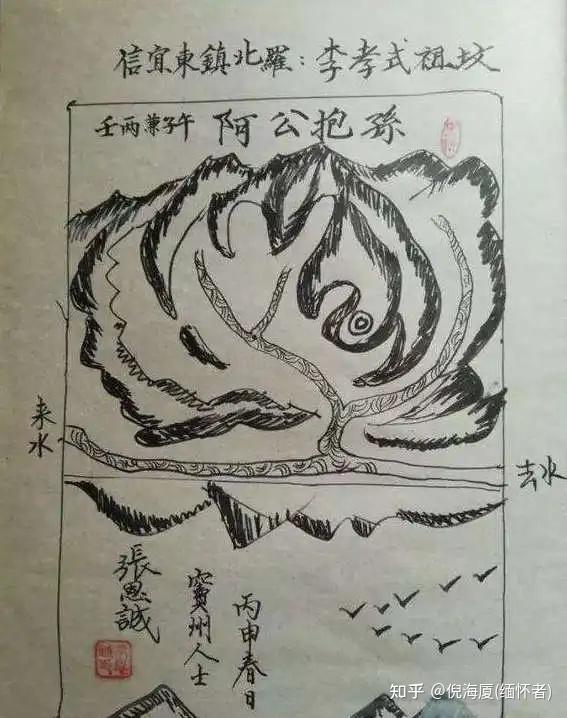 信宜東鎮北羅：李孝式祖坟
壬丙兼子午 阿公抱孫
来水
去水
丙申春日
竇州人士
張思誠
知乎 @倪海厦(缅怀者)